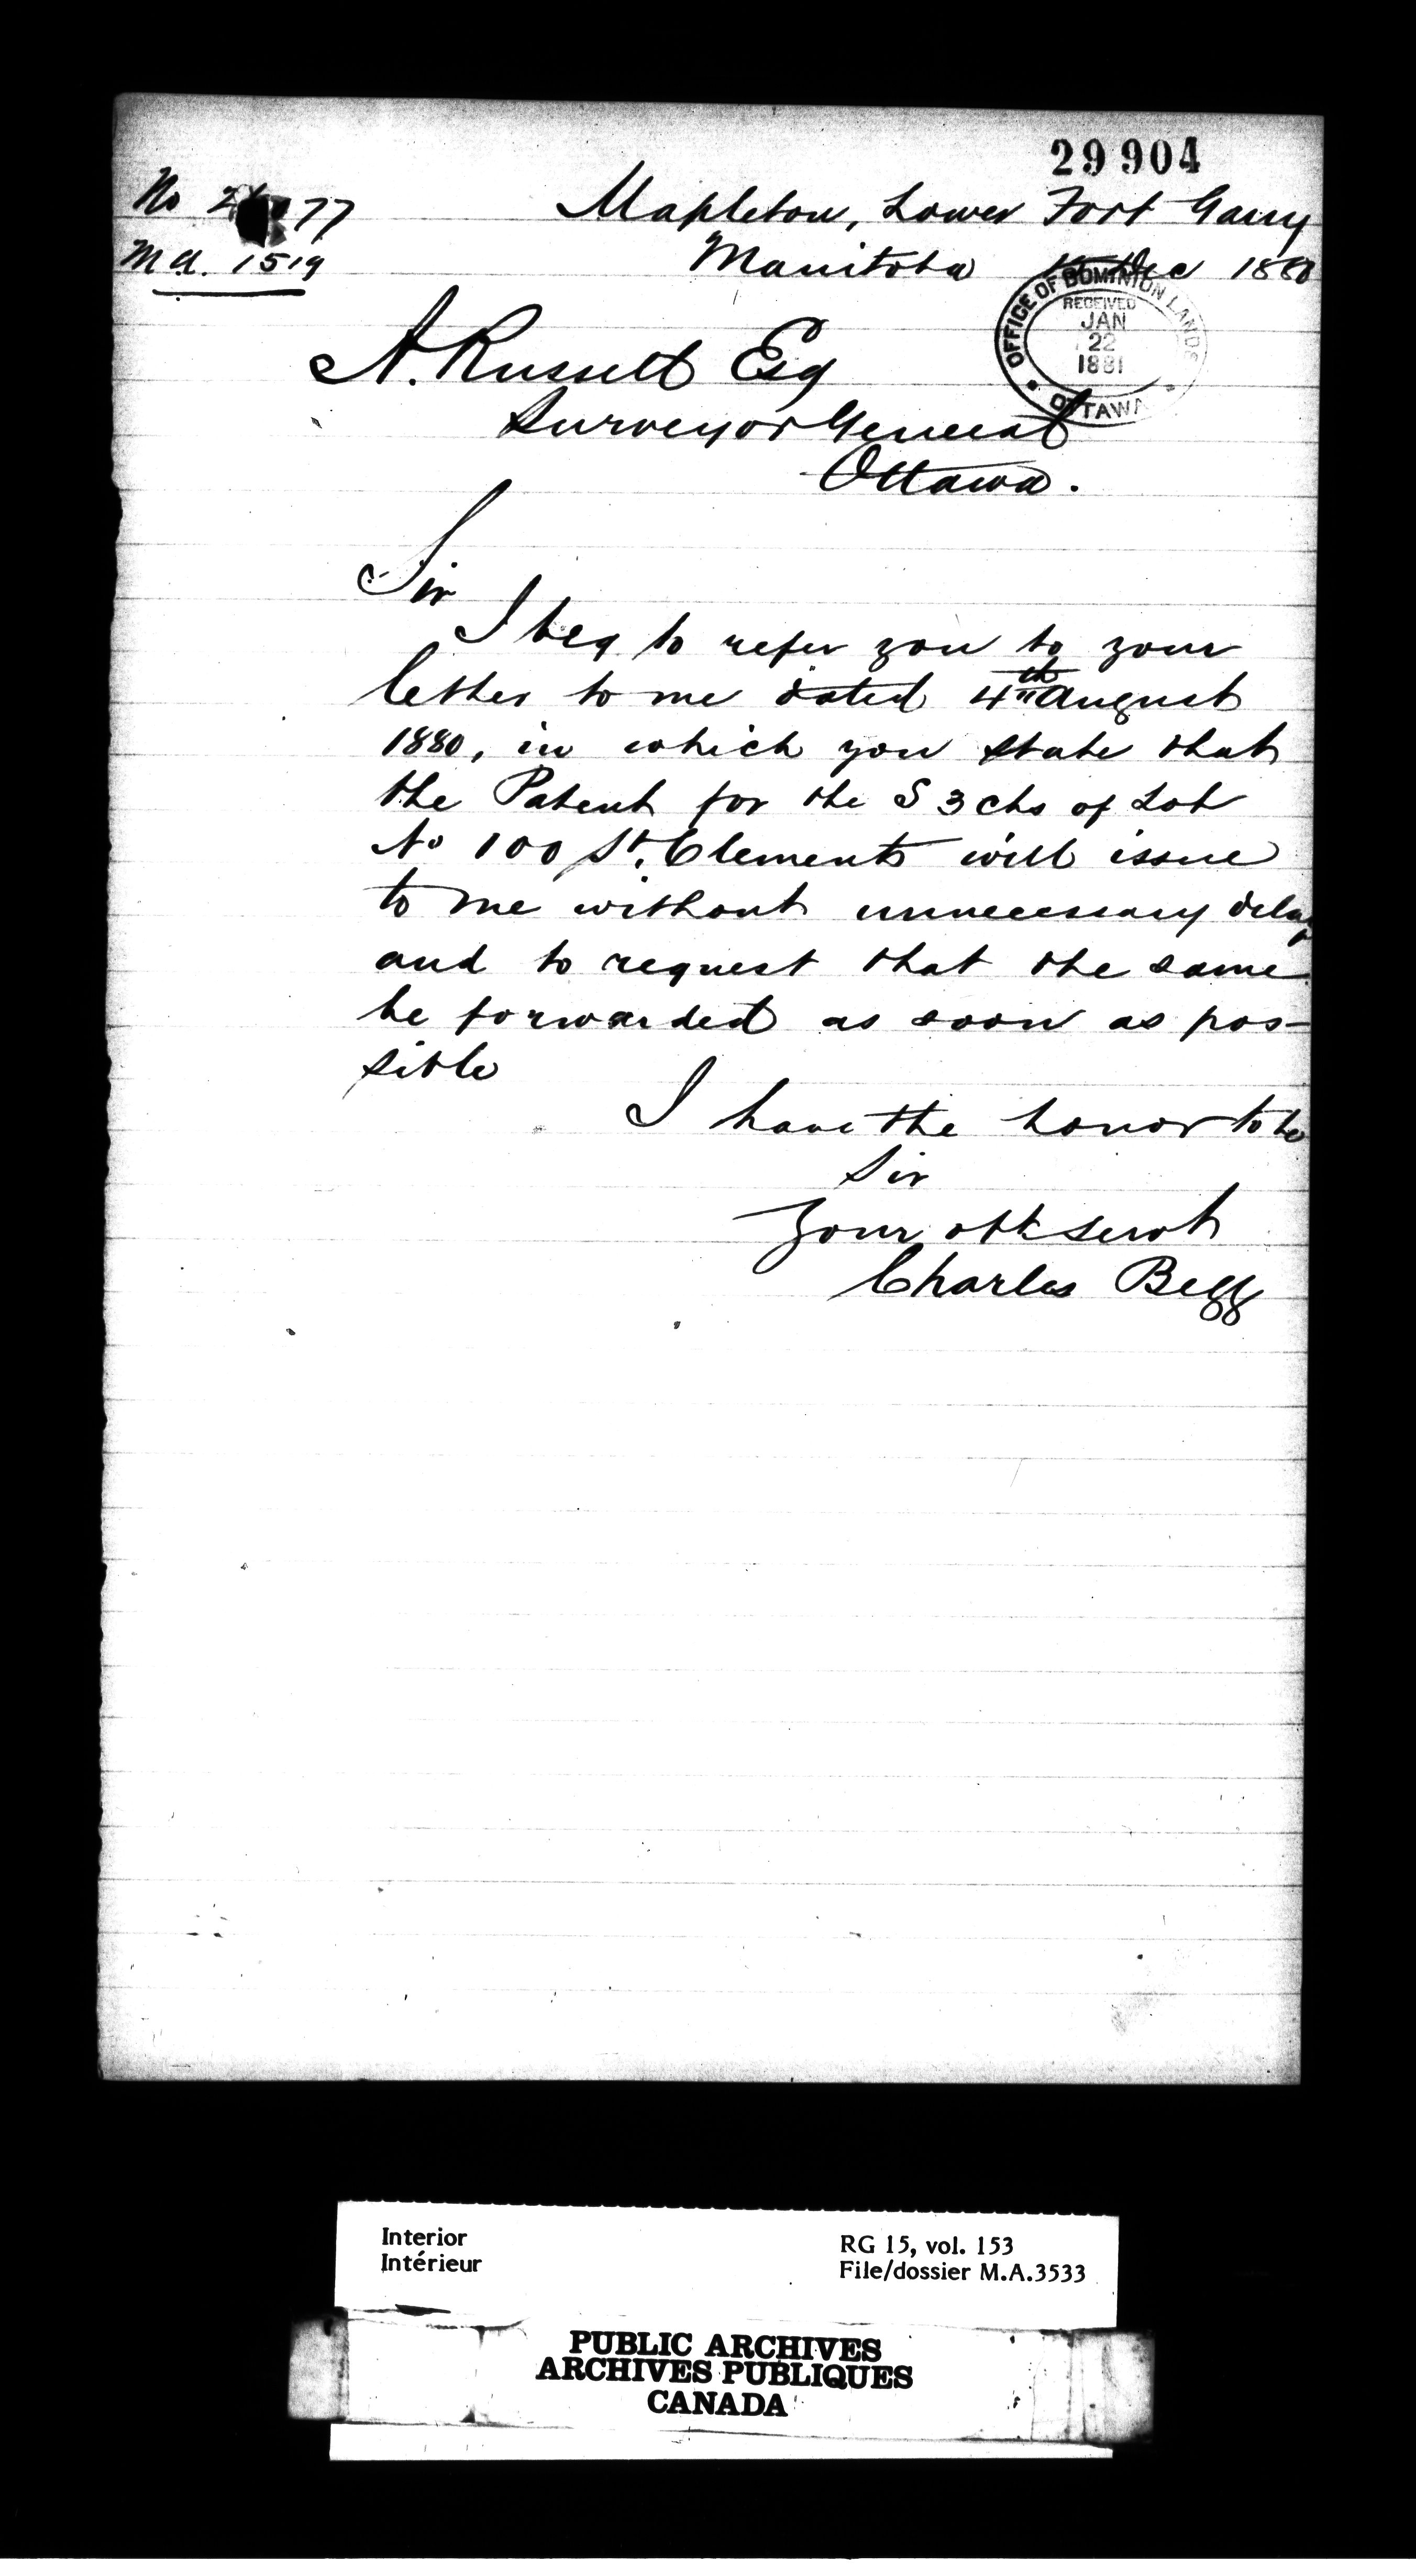 29904
No 2 77
M A. 1519
Mapleton, Lower Fort Garry
Manitoba Dec 1880
OFFICE OF DOMINION LANDS
RECEIVED
JAN
22
1881
OTTAWA
A. Russell Esq
Surveyor General
Ottawa.
Sir
I beg to refer you to your
letter to me dated 4th August
1880, in which you state that
the Patent for the S 3 chs of Lot
No 100 St. Clements will issue
to me without unnecessary delay
and to request that the same
be forwarded as soon as pos-
sible
I have the honor to be
Sir
Your obt servt
Charles Begg
Interior
Intérieur
RG 15, vol. 153
File/dossier M.A.3533
PUBLIC ARCHIVES
ARCHIVES PUBLIQUES
CANADA